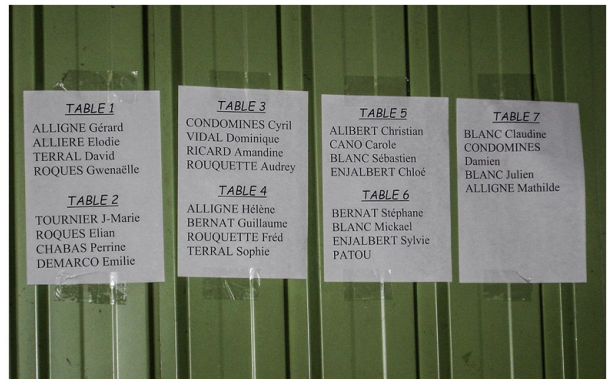 TABLE 1
ALLIGNE Gérard
ALLIERE Elodie
TERRAL David
ROQUES Gwenaëlle
TABLE 2
TOURNIER J-Marie
ROQUES Elian
CHABAS Perrine
DEMARCO Emilie
TABLE 3
CONDOMINES Cyril
VIDAL Dominique
RICARD Amandine
ROUQUETTE Audrey
TABLE 4
ALLIGNE Hélène
BERNAT Guillaume
ROUQUETTE Fréd
TERRAL Sophie
TABLE 5
ALIBERT Christian
CANO Carole
BLANC Sébastien
ENJALBERT Chloé
TABLE 6
BERNAT Stéphane
BLANC Mickael
ENJALBERT Sylvie
PATOU
TABLE 7
BLANC Claudine
CONDOMINES
Damien
BLANC Julien
ALLIGNE Mathilde